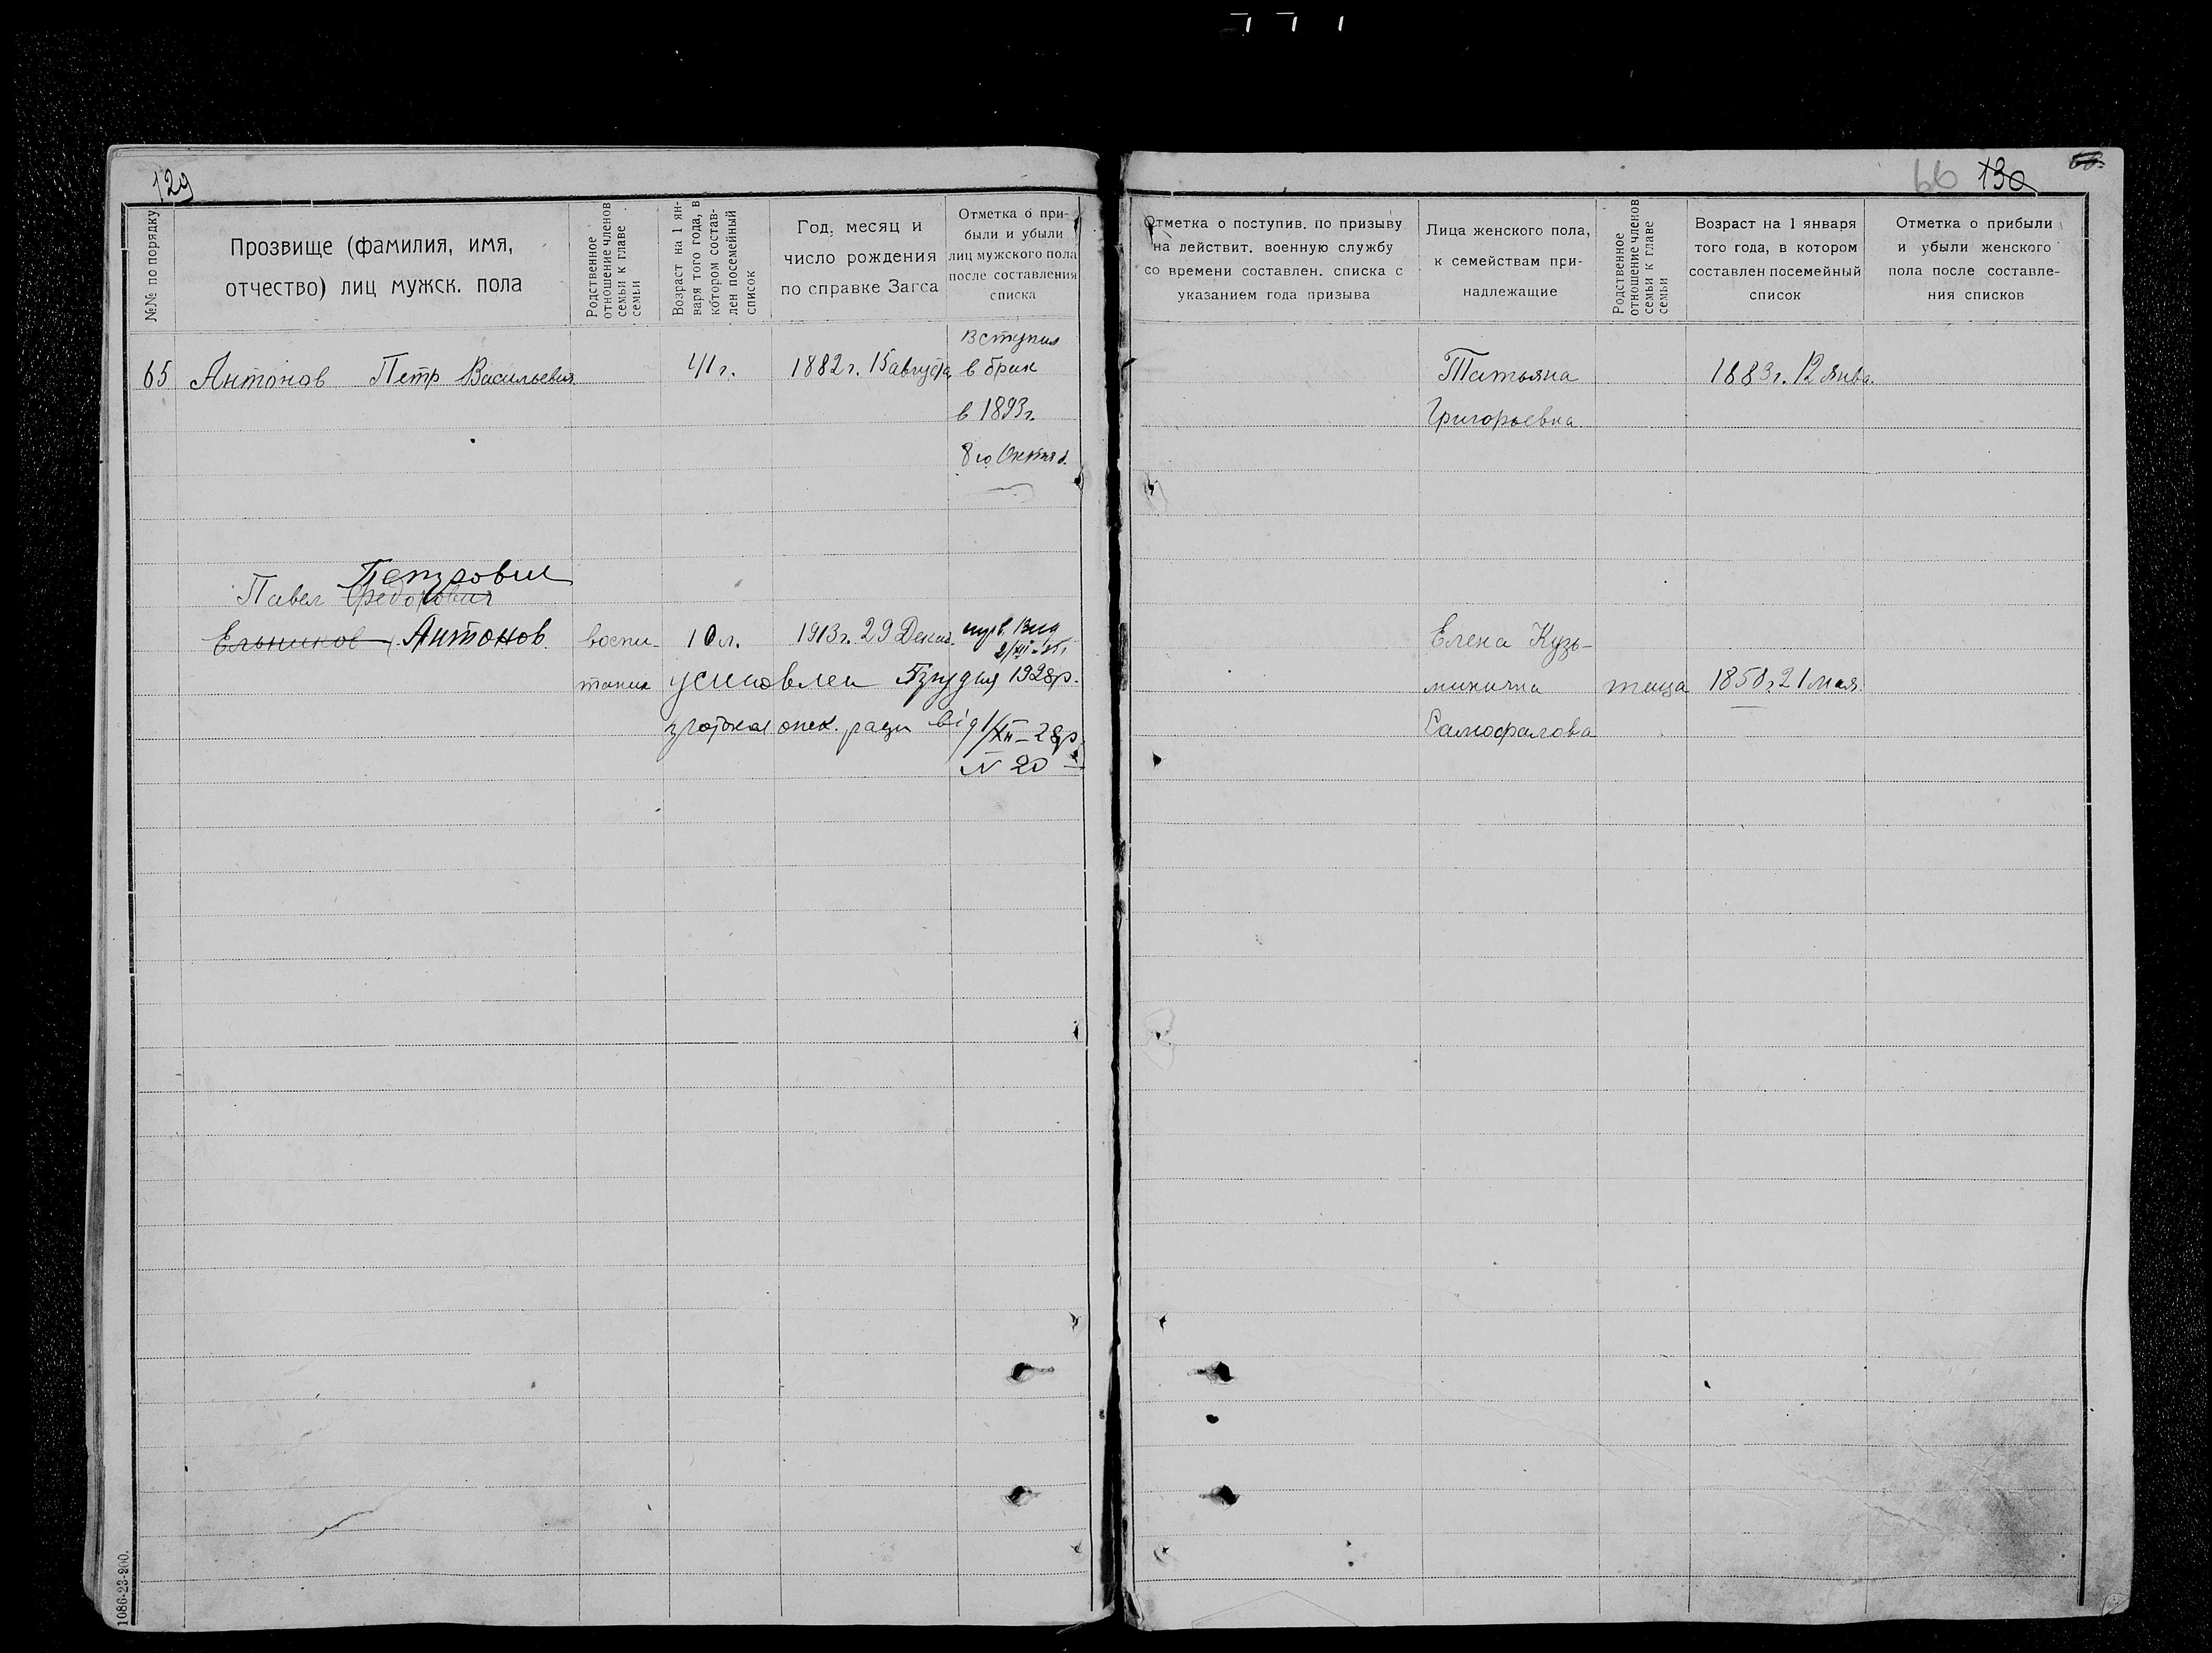 129
№№ по порядку
Прозвище (фамилия, имя,
отчество) лиц мужск. пола
Родственное
отношение членов
семьи к главе
семьи
Возраст на 1 ян-
варя того года, в
котором состав-
лен посемейный
список
Год, месяц и
число рождения
по справке Загса
Отметка о при-
были и убыли
лиц мужского пола
после составления
списка
65 Антонов Петр Васильевич 41 г. 1882 г. 15 августа
Вступил
в брак
в 1893 г.
8го Октяб.
Петрович
Павел Федорович
Ельников Антонов воспи- 10 л. 1913 г. 29 Декаб.
таник усиновлен 1928р.
згідно опек. ради від 1/XII-28р
N 20
1086-23-200.
66 130
Отметка о поступив. по призыву
на действит. военную службу
со времени составлен. списка с
указанием года призыва
Лица женского пола,
к семействам при-
надлежащие
Родственное
отношение членов
семьи к главе
семьи
Возраст на 1 января
того года, в котором
составлен посемейный
список
Отметка о прибыли
и убыли женского
пола после составле-
ния списков
Татьяна 1883 г. 12 Янва.
Григорьевна
Елена Кузь-
минична теща 1850 г. 21 мая.
Самофалова